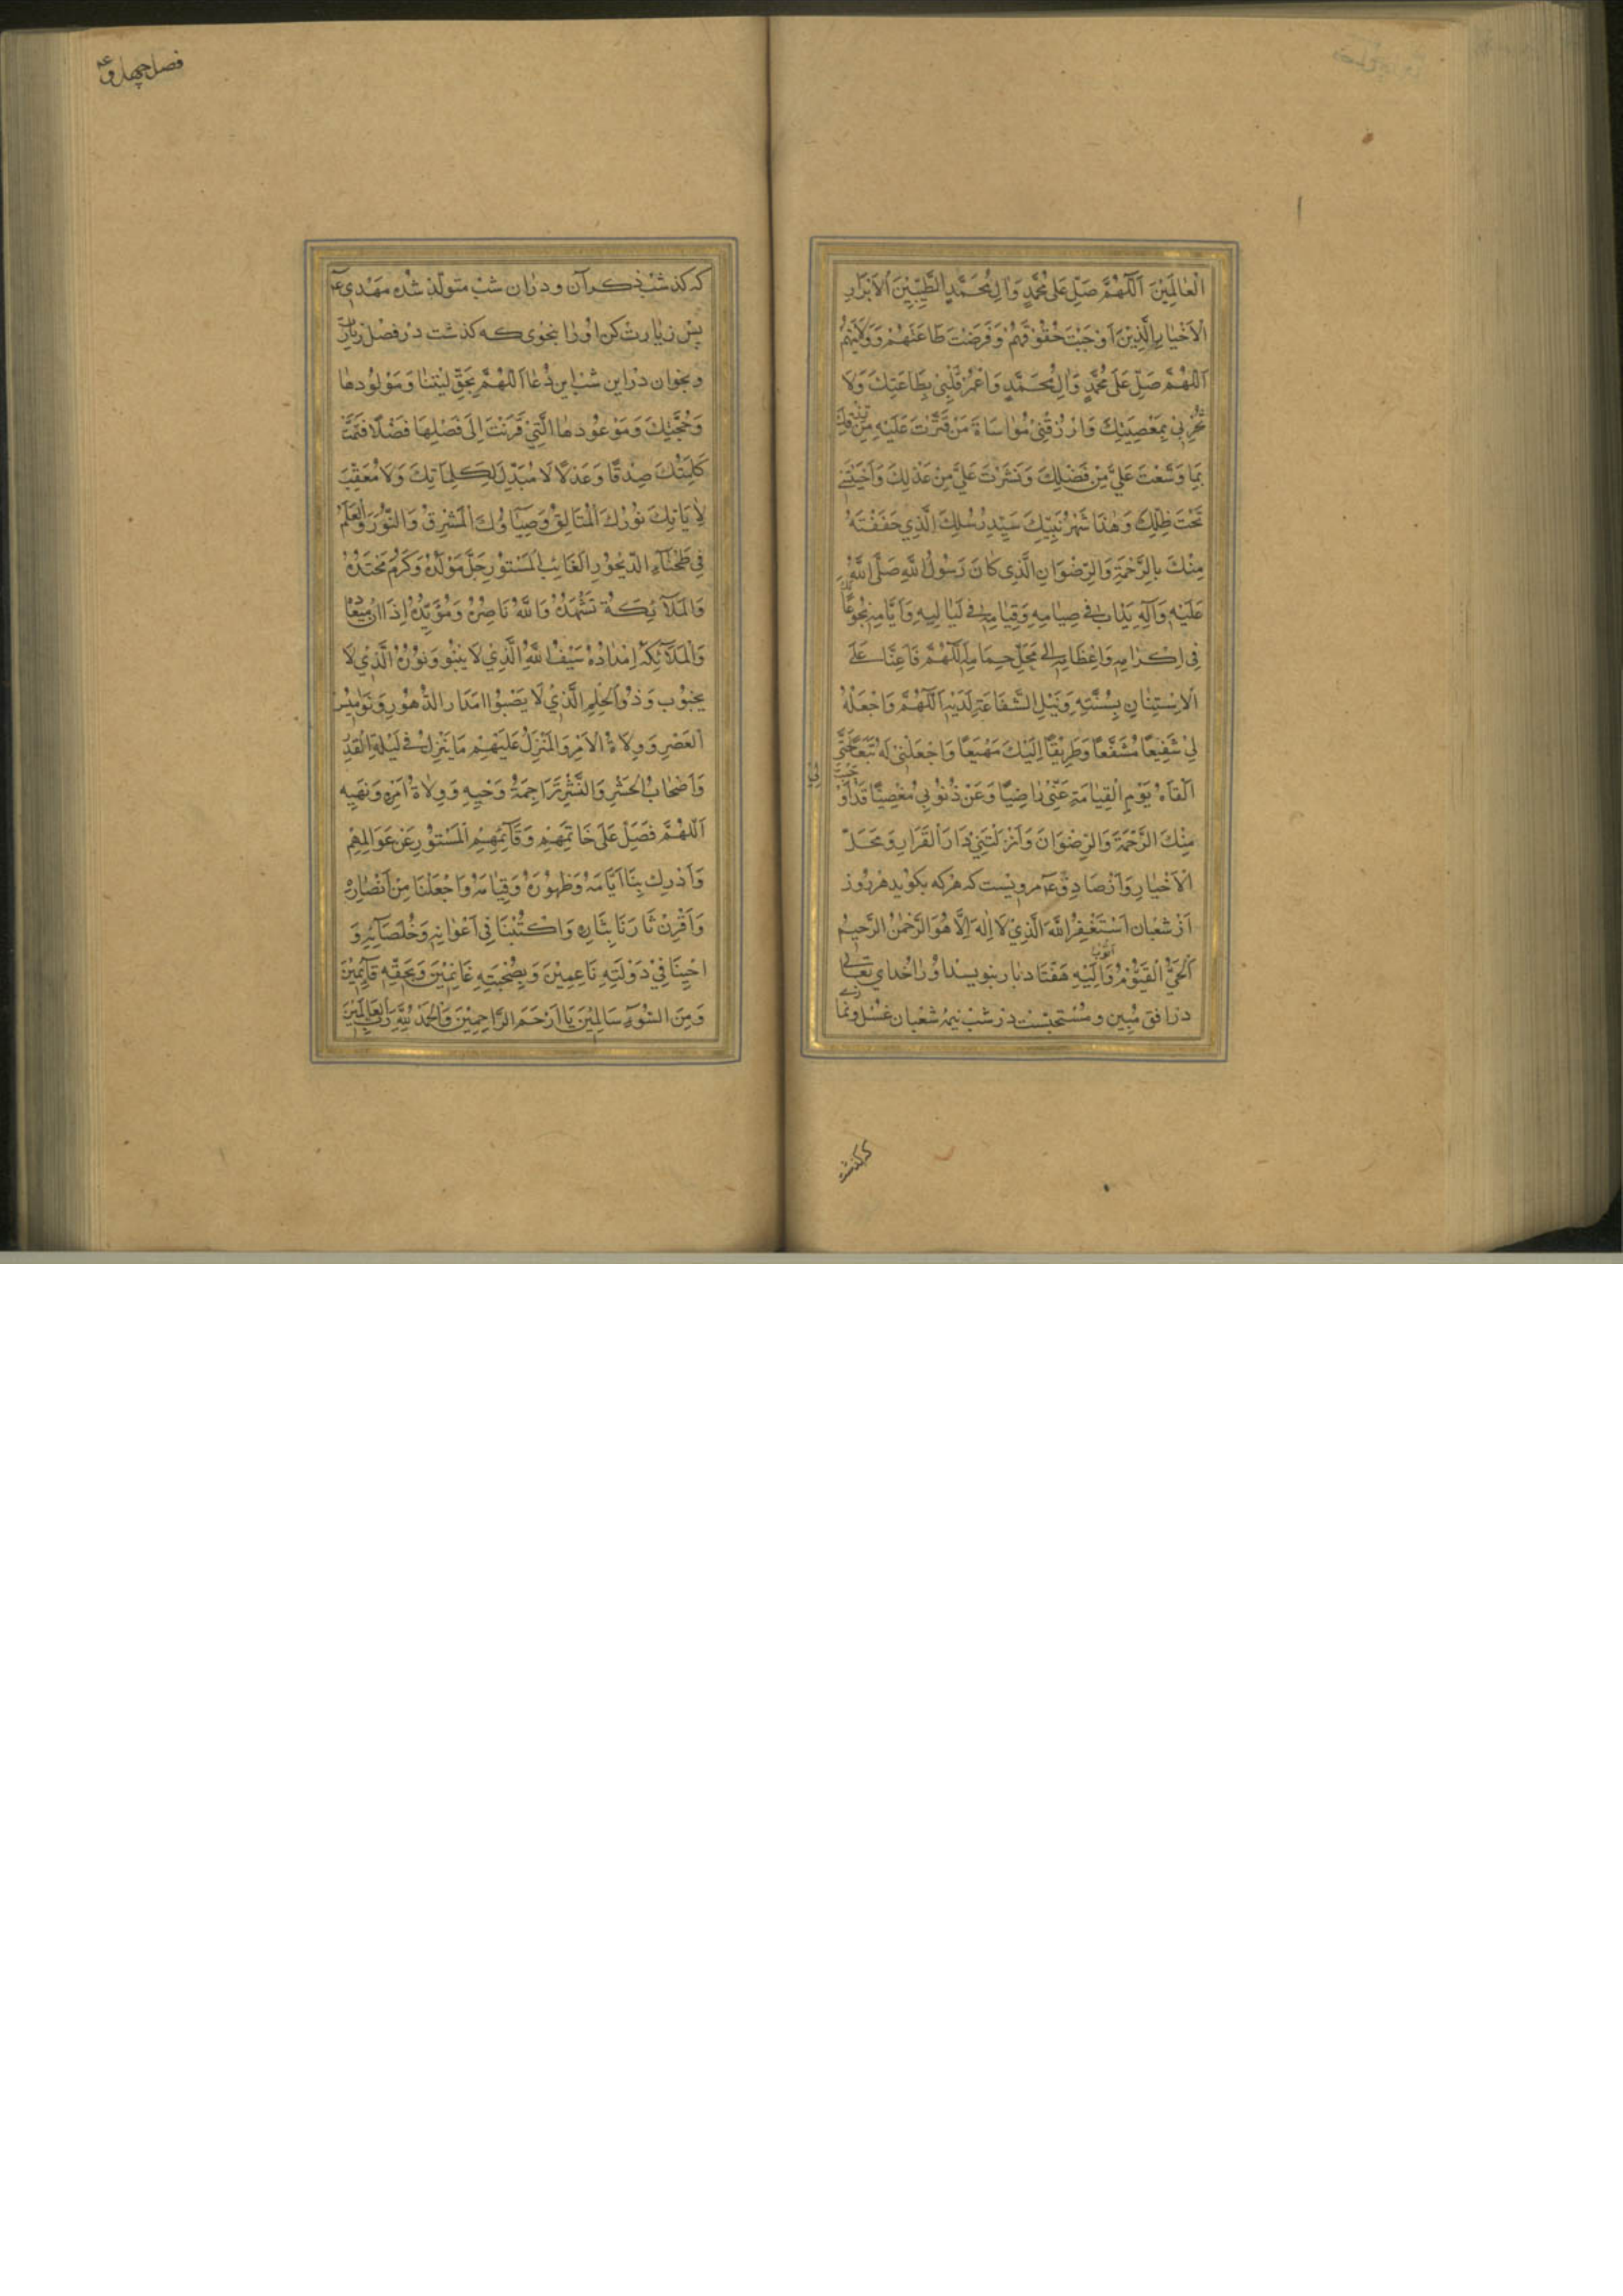 الْعَالَمِيْنَ اَللّٰهُمَّ صَلِّ عَلٰى مُحَمَّدٍ وَاٰلِ مُحَمَّدٍ الطَّيِّبِيْنَ الْاَبْرَارِ
الْاَخْيَارِ الَّذِيْنَ اَوْجَبْتَ حُقُوْقَهُمْ وَفَرَضْتَ طَاعَتَهُمْ وَوَلَايَتَهُمْ
اَللّٰهُمَّ صَلِّ عَلٰى مُحَمَّدٍ وَاٰلِ مُحَمَّدٍ وَاعْمُرْ قَلْبِيْ بِطَاعَتِكَ وَلَا
تُخْزِنِيْ بِمَعْصِيَتِكَ وَارْزُقْنِيْ مُوَاسَاةَ مَنْ قَتَّرْتَ عَلَيْهِ مِنْ رِزْقِكَ
بِمَا وَسَّعْتَ عَلَيَّ مِنْ فَضْلِكَ وَنَشَرْتَ عَلَيَّ مِنْ عَدْلِكَ وَاَحْيَيْتَنِيْ
تَحْتَ ظِلِّكَ وَهٰذَا شَهْرُ نَبِيِّكَ سَيِّدِ رُسُلِكَ الَّذِي حَفَفْتَهُ
مِنْكَ بِالرَّحْمَةِ وَالرِّضْوَانِ الَّذِي كَانَ رَسُوْلُ اللهِ صَلَّى اللهُ
عَلَيْهِ وَآلِهِ يَدْاَبُ فِي صِيَامِهِ وَقِيَامِهِ فِي لَيَالِيهِ وَاَيَّامِهِ بُخُوْعًا لَكَ
فِي اِكْرَامِهِ وَاِعْظَامِهِ اِلٰى مَحَلِّ حِمَامِهِ اَللّٰهُمَّ فَاَعِنَّا عَلَى
الْاِسْتِنَانِ بِسُنَّتِهِ وَنَيْلِ الشَّفَاعَةِ لَدَيْهِ اَللّٰهُمَّ وَاجْعَلْهُ
لِيْ شَفِيْعًا مُشَفَّعًا وَطَرِيْقًا اِلَيْكَ مَهْيَعًا وَاجْعَلْنِيْ لَهُ تَبَعًا حَتَّى
اَلْقَاهُ يَوْمَ الْقِيَامَةِ عَنِّيْ رَاضِيًا وَعَنْ ذُنُوْبِيْ مُغْضِيًا قَدْ اَوْجَبْتَ لِي
مِنْكَ الرَّحْمَةَ وَالرِّضْوَانَ وَاَنْزَلْتَنِيْ دَارَ الْقَرَارِ وَمَحَلَّ
الْاَخْيَارِ وَاَزْ صَادِقْ عَم مرويست كه هركه بكويد هر روز
اَزْ شَعْبَان اَسْتَغْفِرُ اللهَ الَّذِيْ لَا اِلٰهَ اِلَّا هُوَ الرَّحْمٰنُ الرَّحِيْمُ
اَلْحَيُّ الْقَيُّوْمُ وَاَتُوْبُ اِلَيْهِ هفتاد بار بنويسد او را خداي تعالى
در افق مبين و مستحبست در شب نيمه شعبان غسل و نمازى
كه كذشت
فصل چهل و
كه كذشت ذكر آن و در ان شب متولد شده مهدى ع
پس زيارت كن او را بنحوى كه كذشت در فصل زيارت
و بخوان در اين شب اين دعا اَللّٰهُمَّ بِحَقِّ لَيْلَتِنَا وَمَوْلُوْدِهَا
وَحُجَّتِكَ وَمَوْعُوْدِهَا الَّتِيْ قَرَنْتَ اِلٰى فَضْلِهَا فَضْلًا فَتَمَّتْ
كَلِمَتُكَ صِدْقًا وَعَدْلًا لَا مُبَدِّلَ لِكَلِمَاتِكَ وَلَا مُعَقِّبَ
لِاٰيَاتِكَ نُوْرُكَ الْمُتَاَلِّقُ وَضِيَاؤُكَ الْمُشْرِقُ وَالنُّوْرُ وَالْعَلَمُ
فِي طَخْيَاءِ الدَّيْجُوْرِ الْغَائِبُ الْمَسْتُوْرُ جَلَّ مَوْلِدُهُ وَكَرُمَ مَحْتِدُهُ
وَالْمَلَائِكَةُ تَشْهَدُهُ وَاللهُ نَاصِرُهُ وَمُؤَيِّدُهُ اِذَا اٰنَ مِيْعَادُهُ
وَالْمَلَائِكَةُ اِمْدَادُهُ سَيْفُ اللهِ الَّذِيْ لَا يَنْبُو وَنُوْرُهُ الَّذِيْ لَا
يَخْبُو وَذُو الْحِلْمِ الَّذِيْ لَا يَصْبُو مَدَارُ الدُّهُوْرِ وَنَوَامِيْسُ
الْعَصْرِ وَوُلَاةُ الْاَمْرِ وَالْمُنَزَّلُ عَلَيْهِمْ مَا يَنْزِلُ فِي لَيْلَةِ الْقَدْرِ
وَاَصْحَابُ الْحَشْرِ وَالنَّشْرِ تَرَاجِمَةُ وَحْيِهِ وَوُلَاةُ اَمْرِهِ وَنَهْيِهِ
اَللّٰهُمَّ فَصَلِّ عَلٰى خَاتِمِهِمْ وَقَائِمِهِمِ الْمَسْتُوْرِ عَنْ عَوَالِمِهِمْ
وَاَدْرِكْ بِنَا اَيَّامَهُ وَظُهُوْرَهُ وَقِيَامَهُ وَاجْعَلْنَا مِنْ اَنْصَارِهِ
وَاَقْرِنْ ثَارَنَا بِثَارِهِ وَاكْتُبْنَا فِي اَعْوَانِهِ وَخُلَصَائِهِ وَ
اَحْيِنَا فِيْ دَوْلَتِهِ نَاعِمِيْنَ وَبِصُحْبَتِهِ غَانِمِيْنَ وَبِحَقِّهِ قَائِمِيْنَ
وَمِنَ السُّوْءِ سَالِمِيْنَ يَا اَرْحَمَ الرَّاحِمِيْنَ وَالْحَمْدُ لِلّٰهِ رَبِّ الْعَالَمِيْنَ